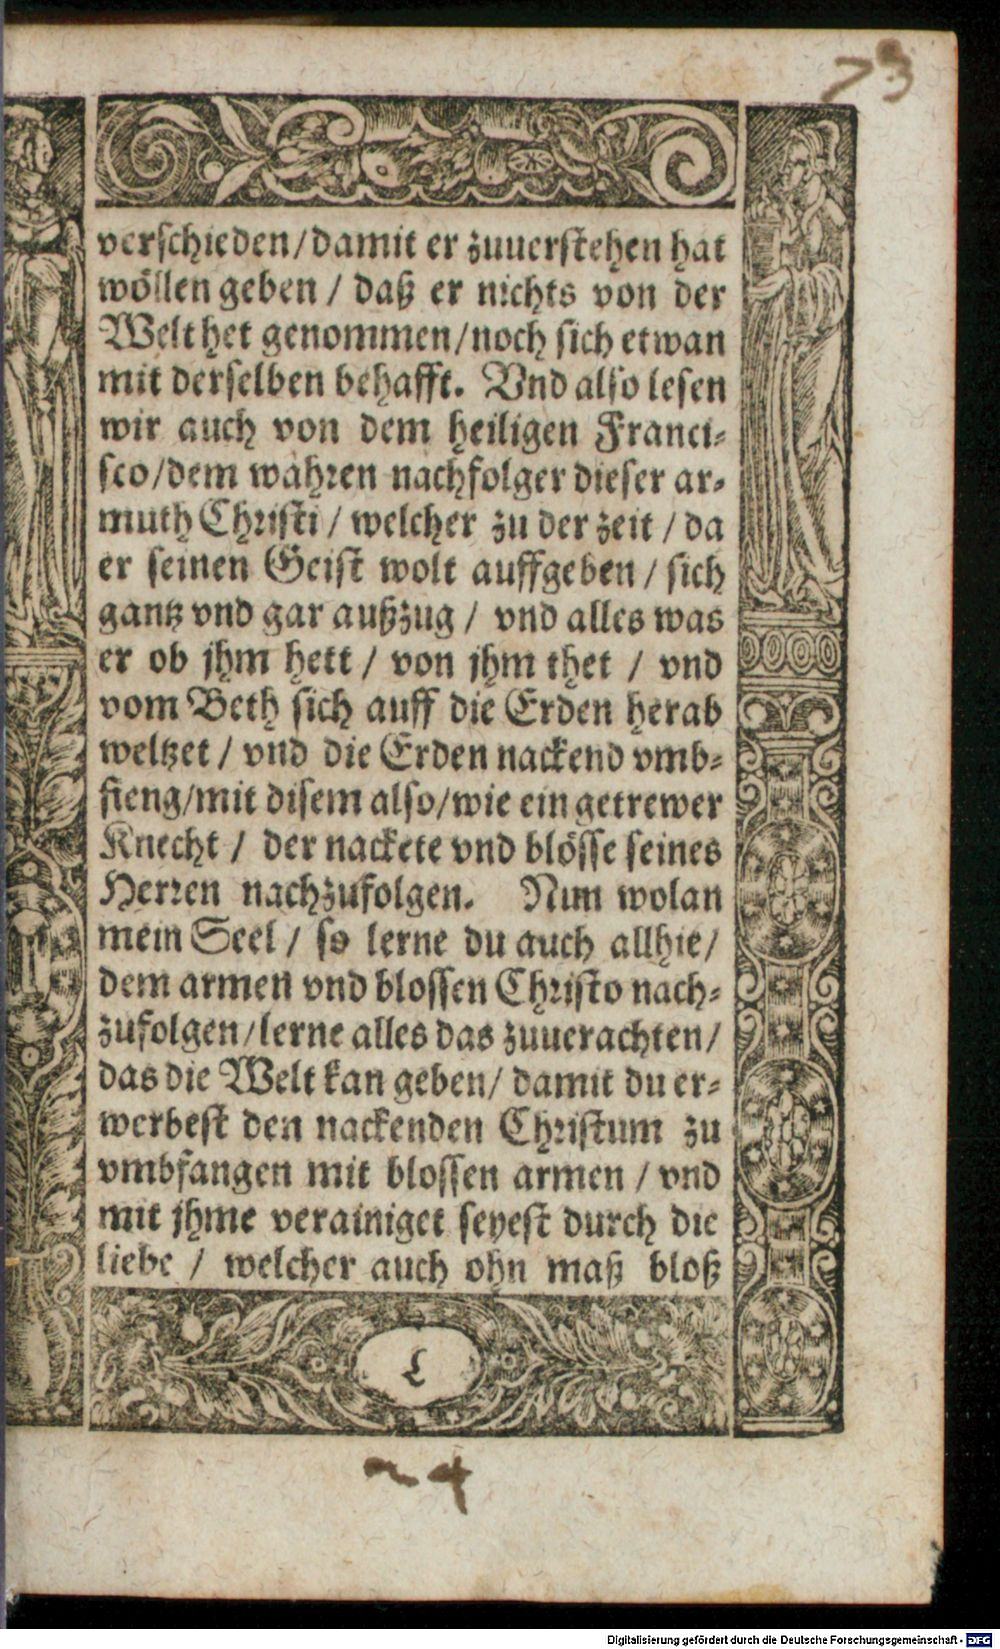 73
verschieden/damit er zuuerstehen hat
wöllen geben / daß er nichts von der
Welt het genommen/noch sich etwan
mit derselben behafft. Vnd also lesen
wir auch von dem heiligen Franci-
sco/dem wahren nachfolger dieser ar-
muth Christi / welcher zu der zeit / da
er seinen Geist wolt auffgeben / sich
gantz vnd gar außzug / vnd alles was
er ob jhm hett / von jhm thet / vnd
vom Beth sich auff die Erden herab
weltzet / vnd die Erden nackend vmb-
fieng/mit disem also/wie ein getrewer
Knecht / der nackete vnd blösse seines
Herren nachzufolgen. Nun wolan
mein Seel / so lerne du auch allhie/
dem armen vnd blossen Christo nach-
zufolgen/lerne alles das zuuerachten/
das die Welt kan geben/ damit du er-
werbest den nackenden Christum zu
vmbfangen mit blossen armen / vnd
mit jhme verainiget seyest durch die
liebe / welcher auch ohn maß bloß
Digitalisierung gefördert durch die Deutsche Forschungsgemeinschaft - DFG